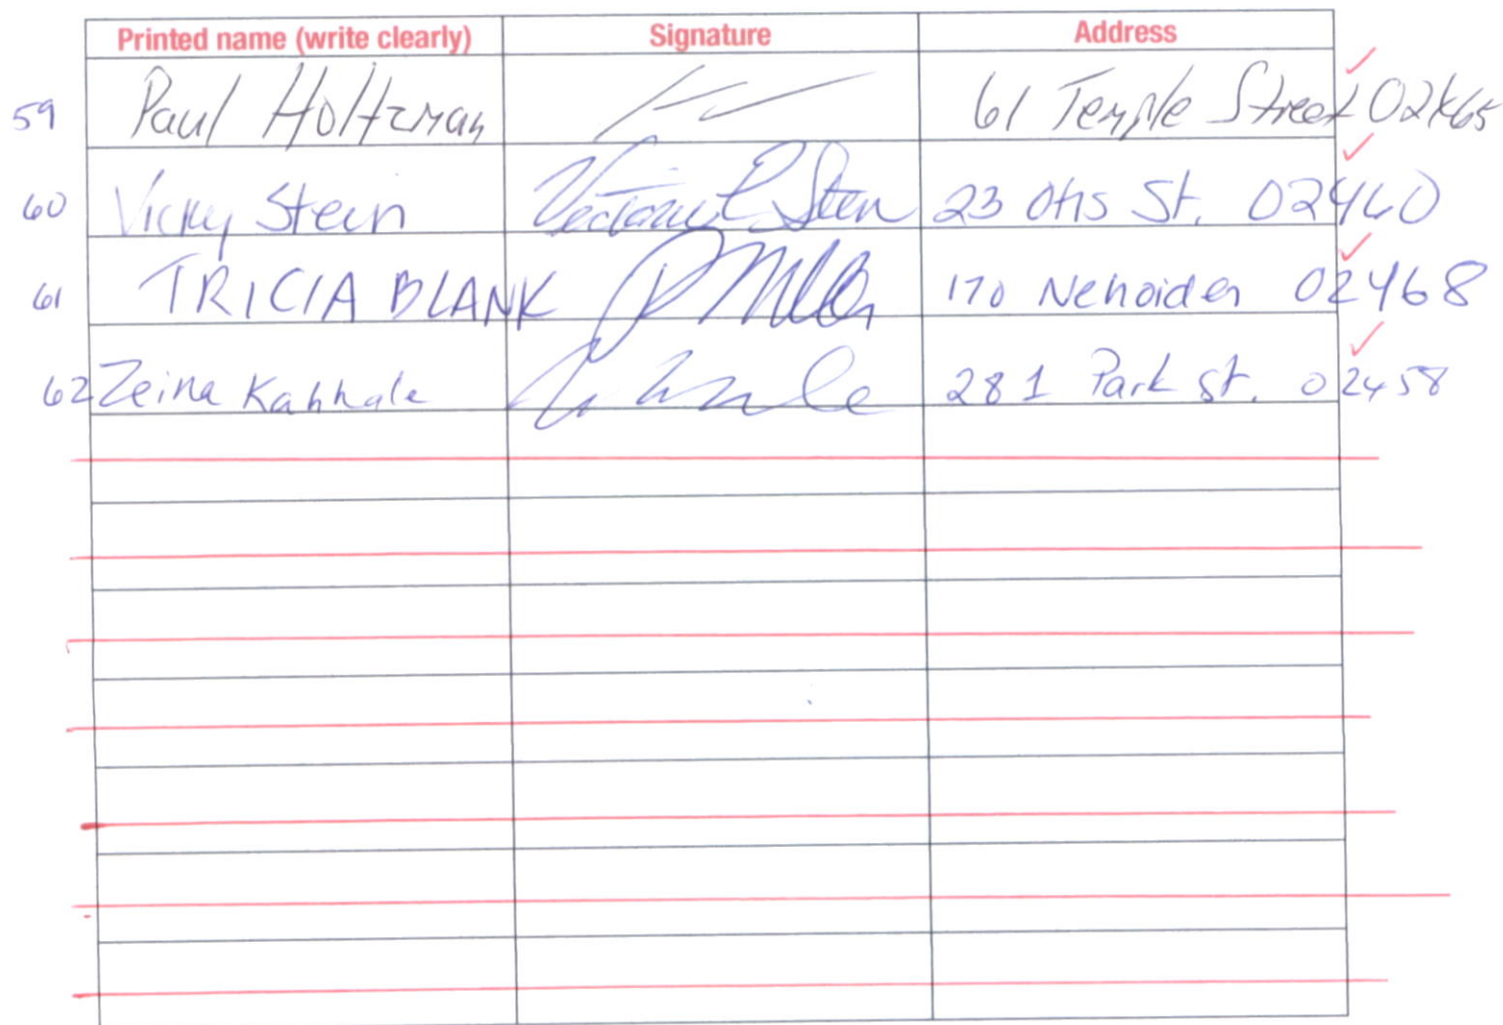 Printed name (write clearly) Signature Address
59 Paul Holtzman 61 Temple Street 02465
60 Vicky Stein Victoria E Stein 23 Otis St. 02460
61 TRICIA BLANK 170 Nehoiden 02468
62 Zeina Kahhale 281 Park St. 02458